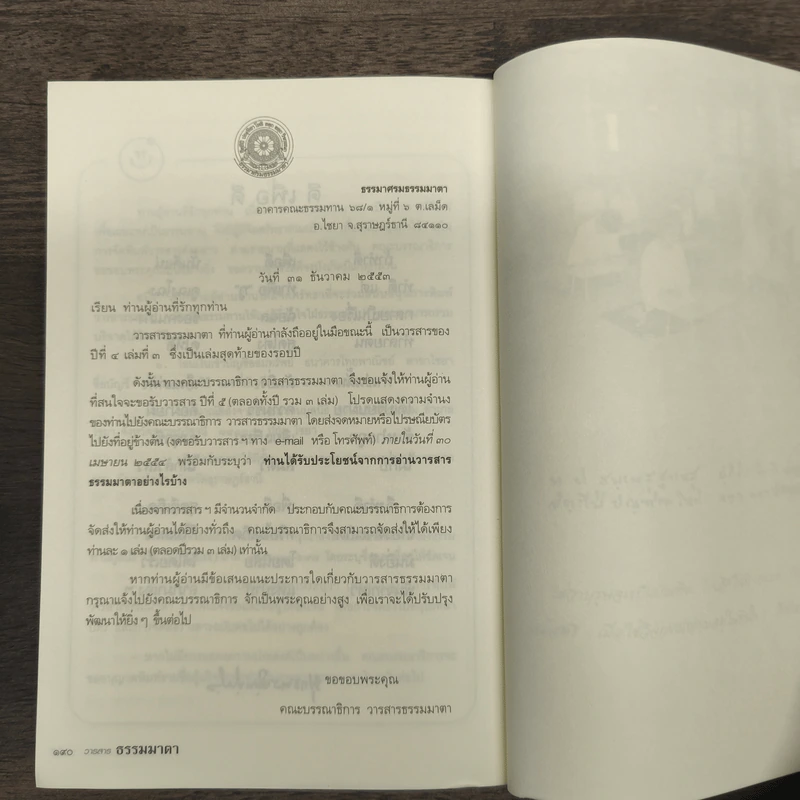 ธรรมาศรมธรรมมาตา
อาคารคณะธรรมทาน ๖๘/๑ หมู่ที่ ๖ ต.เลม็ด
อ.ไชยา จ.สุราษฎร์ธานี ๘๔๑๑๐
วันที่ ๓๑ ธันวาคม ๒๕๕๓
เรียน ท่านผู้อ่านที่รักทุกท่าน
วารสารธรรมมาตา ที่ท่านผู้อ่านกำลังถืออยู่ในมือขณะนี้ เป็นวารสารของ
ปีที่ ๔ เล่มที่ ๓ ซึ่งเป็นเล่มสุดท้ายของรอบปี
ดังนั้น ทางคณะบรรณาธิการ วารสารธรรมมาตา จึงขอแจ้งให้ท่านผู้อ่าน
ที่สนใจจะขอรับวารสาร ปีที่ ๕ (ตลอดทั้งปี รวม ๓ เล่ม) โปรดแสดงความจำนง
ของท่านไปยังคณะบรรณาธิการ วารสารธรรมมาตา โดยส่งจดหมายหรือไปรษณียบัตร
ไปยังที่อยู่ข้างต้น (งดขอรับวารสาร ฯ ทาง e-mail หรือ โทรศัพท์) ภายในวันที่ ๓๐
เมษายน ๒๕๕๔ พร้อมกับระบุว่า ท่านได้รับประโยชน์จากการอ่านวารสาร
ธรรมมาตาอย่างไรบ้าง
เนื่องจากวารสาร ฯ มีจำนวนจำกัด ประกอบกับคณะบรรณาธิการต้องการ
จัดส่งให้ท่านผู้อ่านได้อย่างทั่วถึง คณะบรรณาธิการจึงสามารถจัดส่งให้ได้เพียง
ท่านละ ๑ เล่ม (ตลอดปีรวม ๓ เล่ม) เท่านั้น
หากท่านผู้อ่านมีข้อเสนอแนะประการใดเกี่ยวกับวารสารธรรมมาตา
กรุณาแจ้งไปยังคณะบรรณาธิการ จักเป็นพระคุณอย่างสูง เพื่อเราจะได้ปรับปรุง
พัฒนาให้ยิ่ง ๆ ขึ้นต่อไป
ขอขอบพระคุณ
คณะบรรณาธิการ วารสารธรรมมาตา
๑๙๐ วารสาร ธรรมมาตา